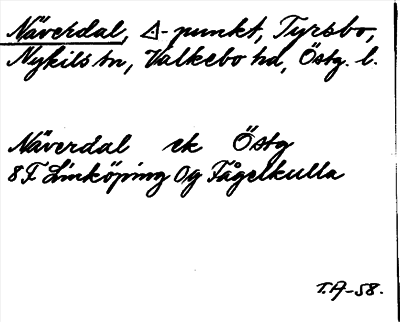 Näverdal, △-punkt, Tyrsbo,
Nykils sn, Valkebo hd, Östg. l.
Näverdal ek Östg
8F Linköping 0g Fågelkulla
T.A-58.